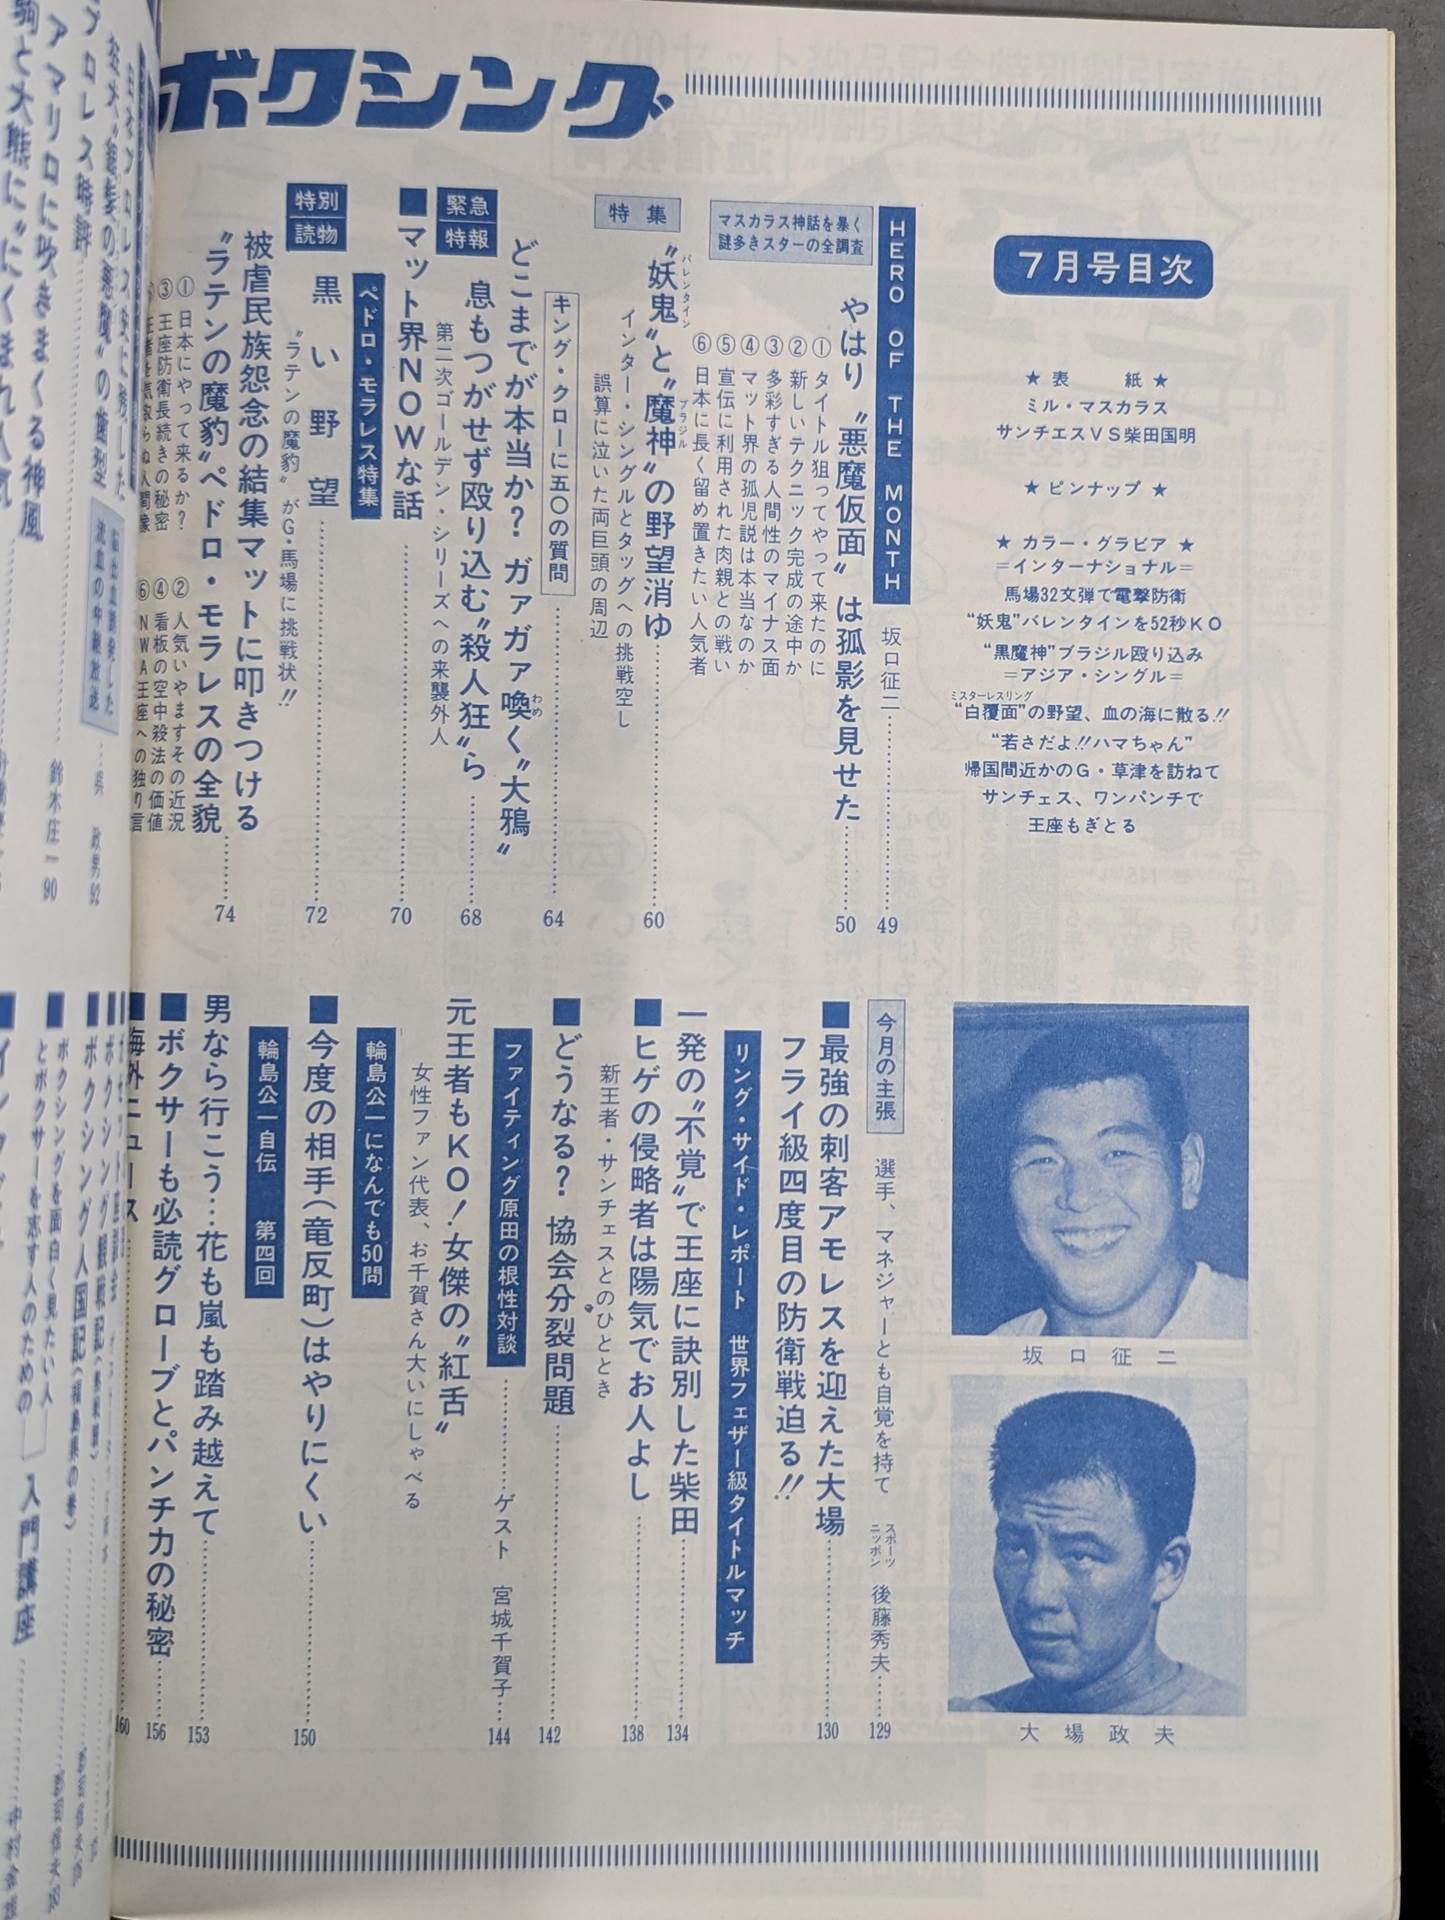 ボクシング
7月号目次
★ 表 紙 ★
ミル・マスカラス
サンチエスVS柴田国明
★ ピンナップ ★
★ カラー・グラビア ★
＝インターナショナル＝
馬場32文弾で電撃防衛
“妖鬼”バレンタインを52秒KO
“黒魔神”ブラジル殴り込み
＝アジア・シングル＝
ミスターレスリング
“白覆面”の野望、血の海に散る!!
“若さだよ!!ハマちゃん”
帰国間近かのG・草津を訪ねて
サンチェス、ワンパンチで
王座もぎとる
HERO OF THE MONTH 坂口征二……49
マスカラス神話を暴く
謎多きスターの全調査
やはり〝悪魔仮面〟は孤影を見せた……50
① タイトル狙ってやって来たのに
② 新しいテクニック完成の途中か
③ 多彩すぎる人間性のマイナス面
④ マット界の孤児説は本当なのか
⑤ 宣伝に利用された肉親との戦い
⑥ 日本に長く留め置きたい人気者
特集
〝妖鬼〟と〝魔神〟の野望消ゆ……60
バレンタイン
ブラジル
インター・シングルとタッグへの挑戦空し
誤算に泣いた両巨頭の周辺
キング・クローに五〇の質問……64
どこまでが本当か? ガァガァ喚く〝大鴉〟
わめ
緊急
特報
息もつがせず殴り込む〝殺人狂〟ら……68
第二次ゴールデン・シリーズへの来襲外人
■マット界NOWな話……70
ペドロ・モラレス特集
特別
読物
黒い野望……72
〝ラテンの魔豹〟がG・馬場に挑戦状!!
被虐民族怨念の結集マットに叩きつける
〝ラテンの魔豹〟ペドロ・モラレスの全貌……74
① 日本にやって来るか?
② 人気いやますその近況
③ 王座防衛長続きの秘密
④ 看板の空中殺法の価値
⑥ NWA王座への独り言
坂口征二
大場政夫
今月の主張 選手、マネジャーとも自覚を持て スポーツニッポン 後藤秀夫……129
■最強の刺客アモレスを迎えた大場……130
フライ級四度目の防衛戦迫る!!
リング・サイド・レポート 世界フェザー級タイトルマッチ
一発の〝不覚〟で王座に訣別した柴田……134
■ヒゲの侵略者は陽気でお人よし……138
新王者・サンチェスとのひととき
■どうなる? 協会分裂問題……142
ファイティング原田の根性対談……ゲスト 宮城千賀子……144
元王者もKO!女傑の〝紅舌〟
女性ファン代表、お千賀さん大いにしゃべる
輪島公一になんでも50問
■今度の相手(竜反町)はやりにくい……150
輪島公一自伝 第四回
男なら行こう…花も嵐も踏み越えて……153
■ボクサーも必読グローブとパンチ力の秘密……156
■海外ニュース……160